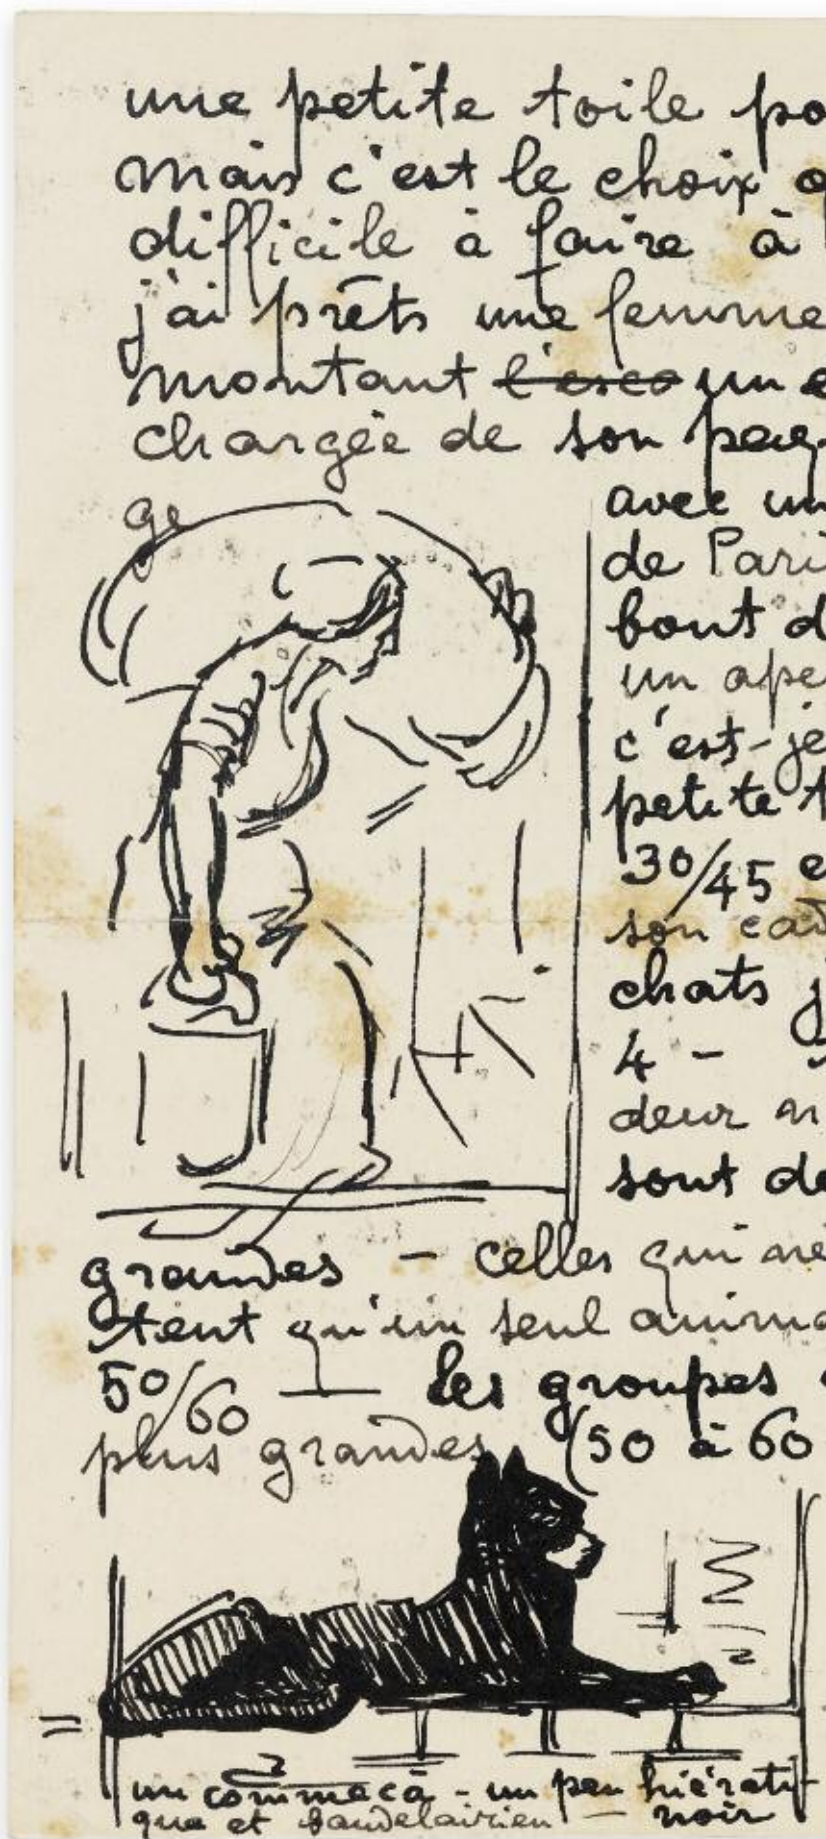 une petite toile po
mais c'est le choix
difficile à faire à
j'ai prêts une femme
montant l'esca un e
chargée de son paq
ge
avec un
de Pari
bout d
un ape
c'est-je
petite t
30/45 e
son cad
chats j
4 -
deux n
sont de
grandes - celles qui ne
tent qu'un seul anima
50/60 — les groupes
plus grandes (50 à 60
un comme ça - un peu hiérati-
que et baudelairien - noir